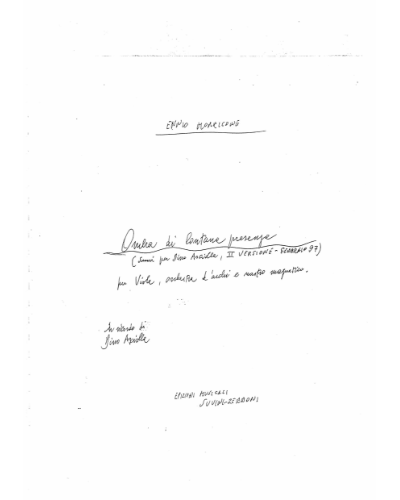 ENNIO MORRICONE
Ombra di lontana presenza
( per Dino Asciolla, II VERSIONE - GENNAIO 97)
per Viola, orchestra d'archi e nastro magnetico.
In ricordo di
Dino Asciolla
EDIZIONI MUSICALI
SUVINI-ZERBONI